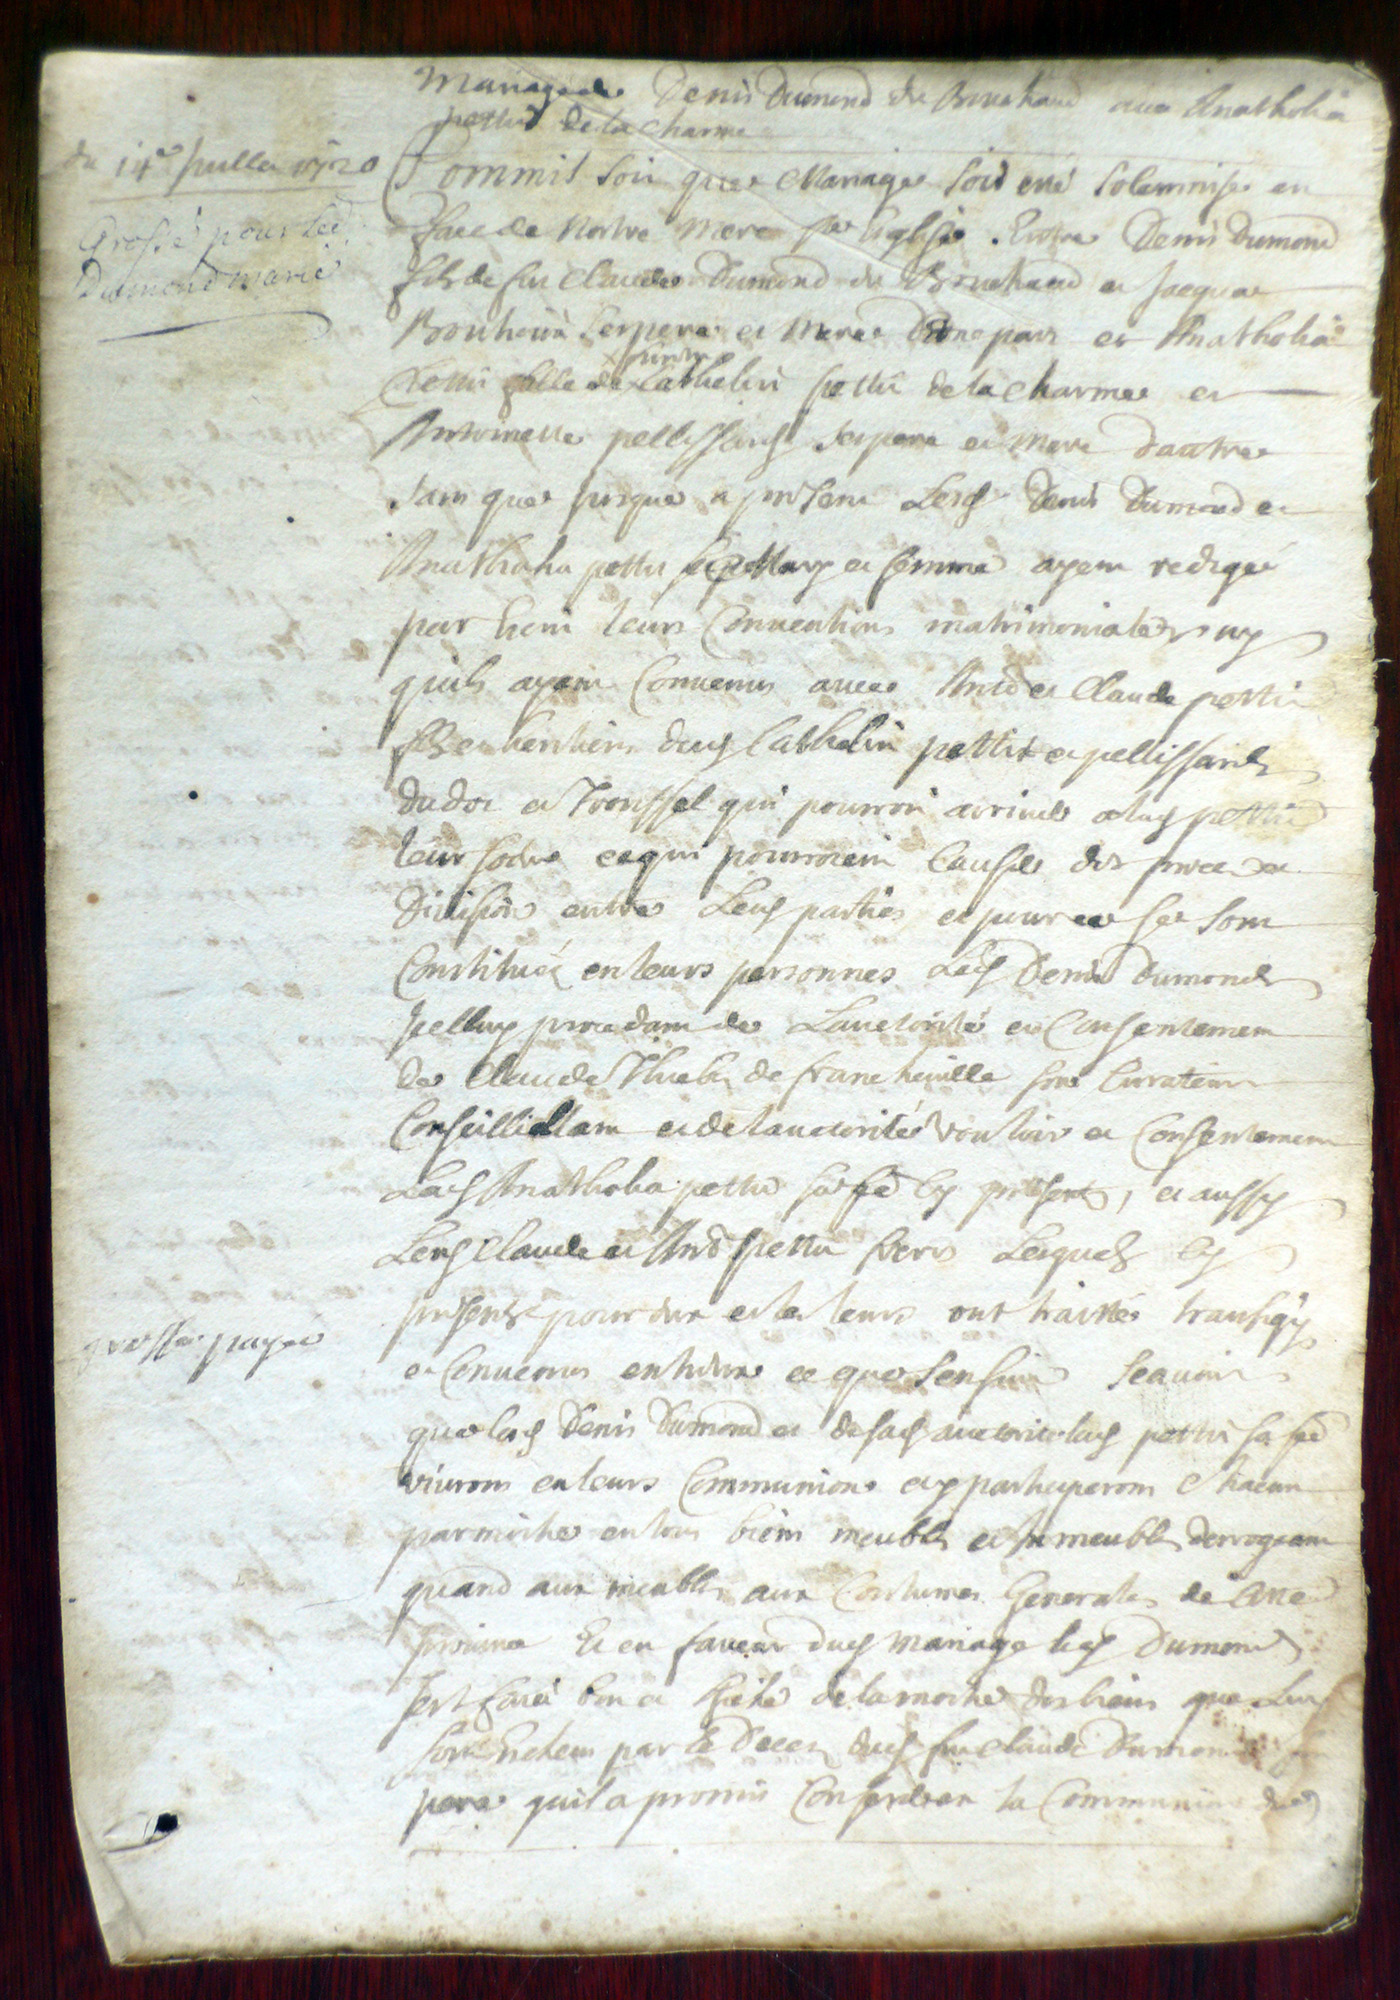 Mariage de Denis Dumond du Bouchaud avec Anatholia
pettit de la charme
du 14e juillet 1720
Comme il soit que Mariage soit esté solemnise en
Grossé pour led.
face de Nostre Mere Ste Esglise Entre Denis Dumond
Dumond marié
fils de feu Claude Dumond du Bouchaud et Jacqua
ses pere et mere d'une part et Anatholia
Pettit fille de Cathelin pettit de la charme et
Antoinette pellissard ses pere et mere d'autre
tant que jusque a present Lesd Denis Dumond et
Anatholia pettit mary et femme ayent redigé
par leurs Conventions matrimoniales ny
quils ayent Convenus avec et Claude pettit
heritiers dud Cathelin pettit et pellissard
du dot et Troussel qui pourroit arriver a lad pettit
leur soeur ce qui pourroient Causer des et
Division entre Lesd parties et pour ce se sont
Constitués en leurs personnes Led Denis Dumond
Icelluy procedant de Lauctorité et Consentement
De Claude de francheville son Curateur
et de lauctorité vouloir et Consentement
Lad Anatholia pettit sa fe cy presente, et aussy
Lesd Claude et pettit freres Lesquels cy
presents pour eux et les leurs ont traittés transigy
grosse payée
et Convenus entre ce que sensuit Scavoir
que led Denis Dumond et de sad auctorité lad pettit sa fe
vivront en leurs Communion et y participeront Chacun
par moitie en tous biens meubles et Immeubles derrogeant
quand aux meubles aux Coustumes Generales de Cette
province Et en faveur dud mariage led Dumond
sest bon et de la moitie des biens que luy
sont Escheus par le Deces dud feu Claude Dumond
pere quil a promis la Communion